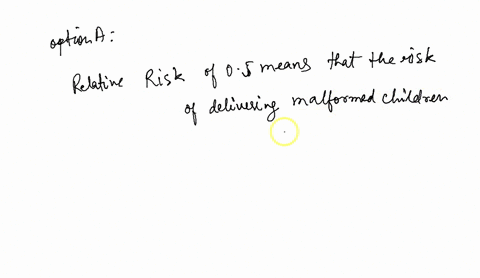 option A:
Relative Risk of 0.5 means that the risk
of delivering malformed children